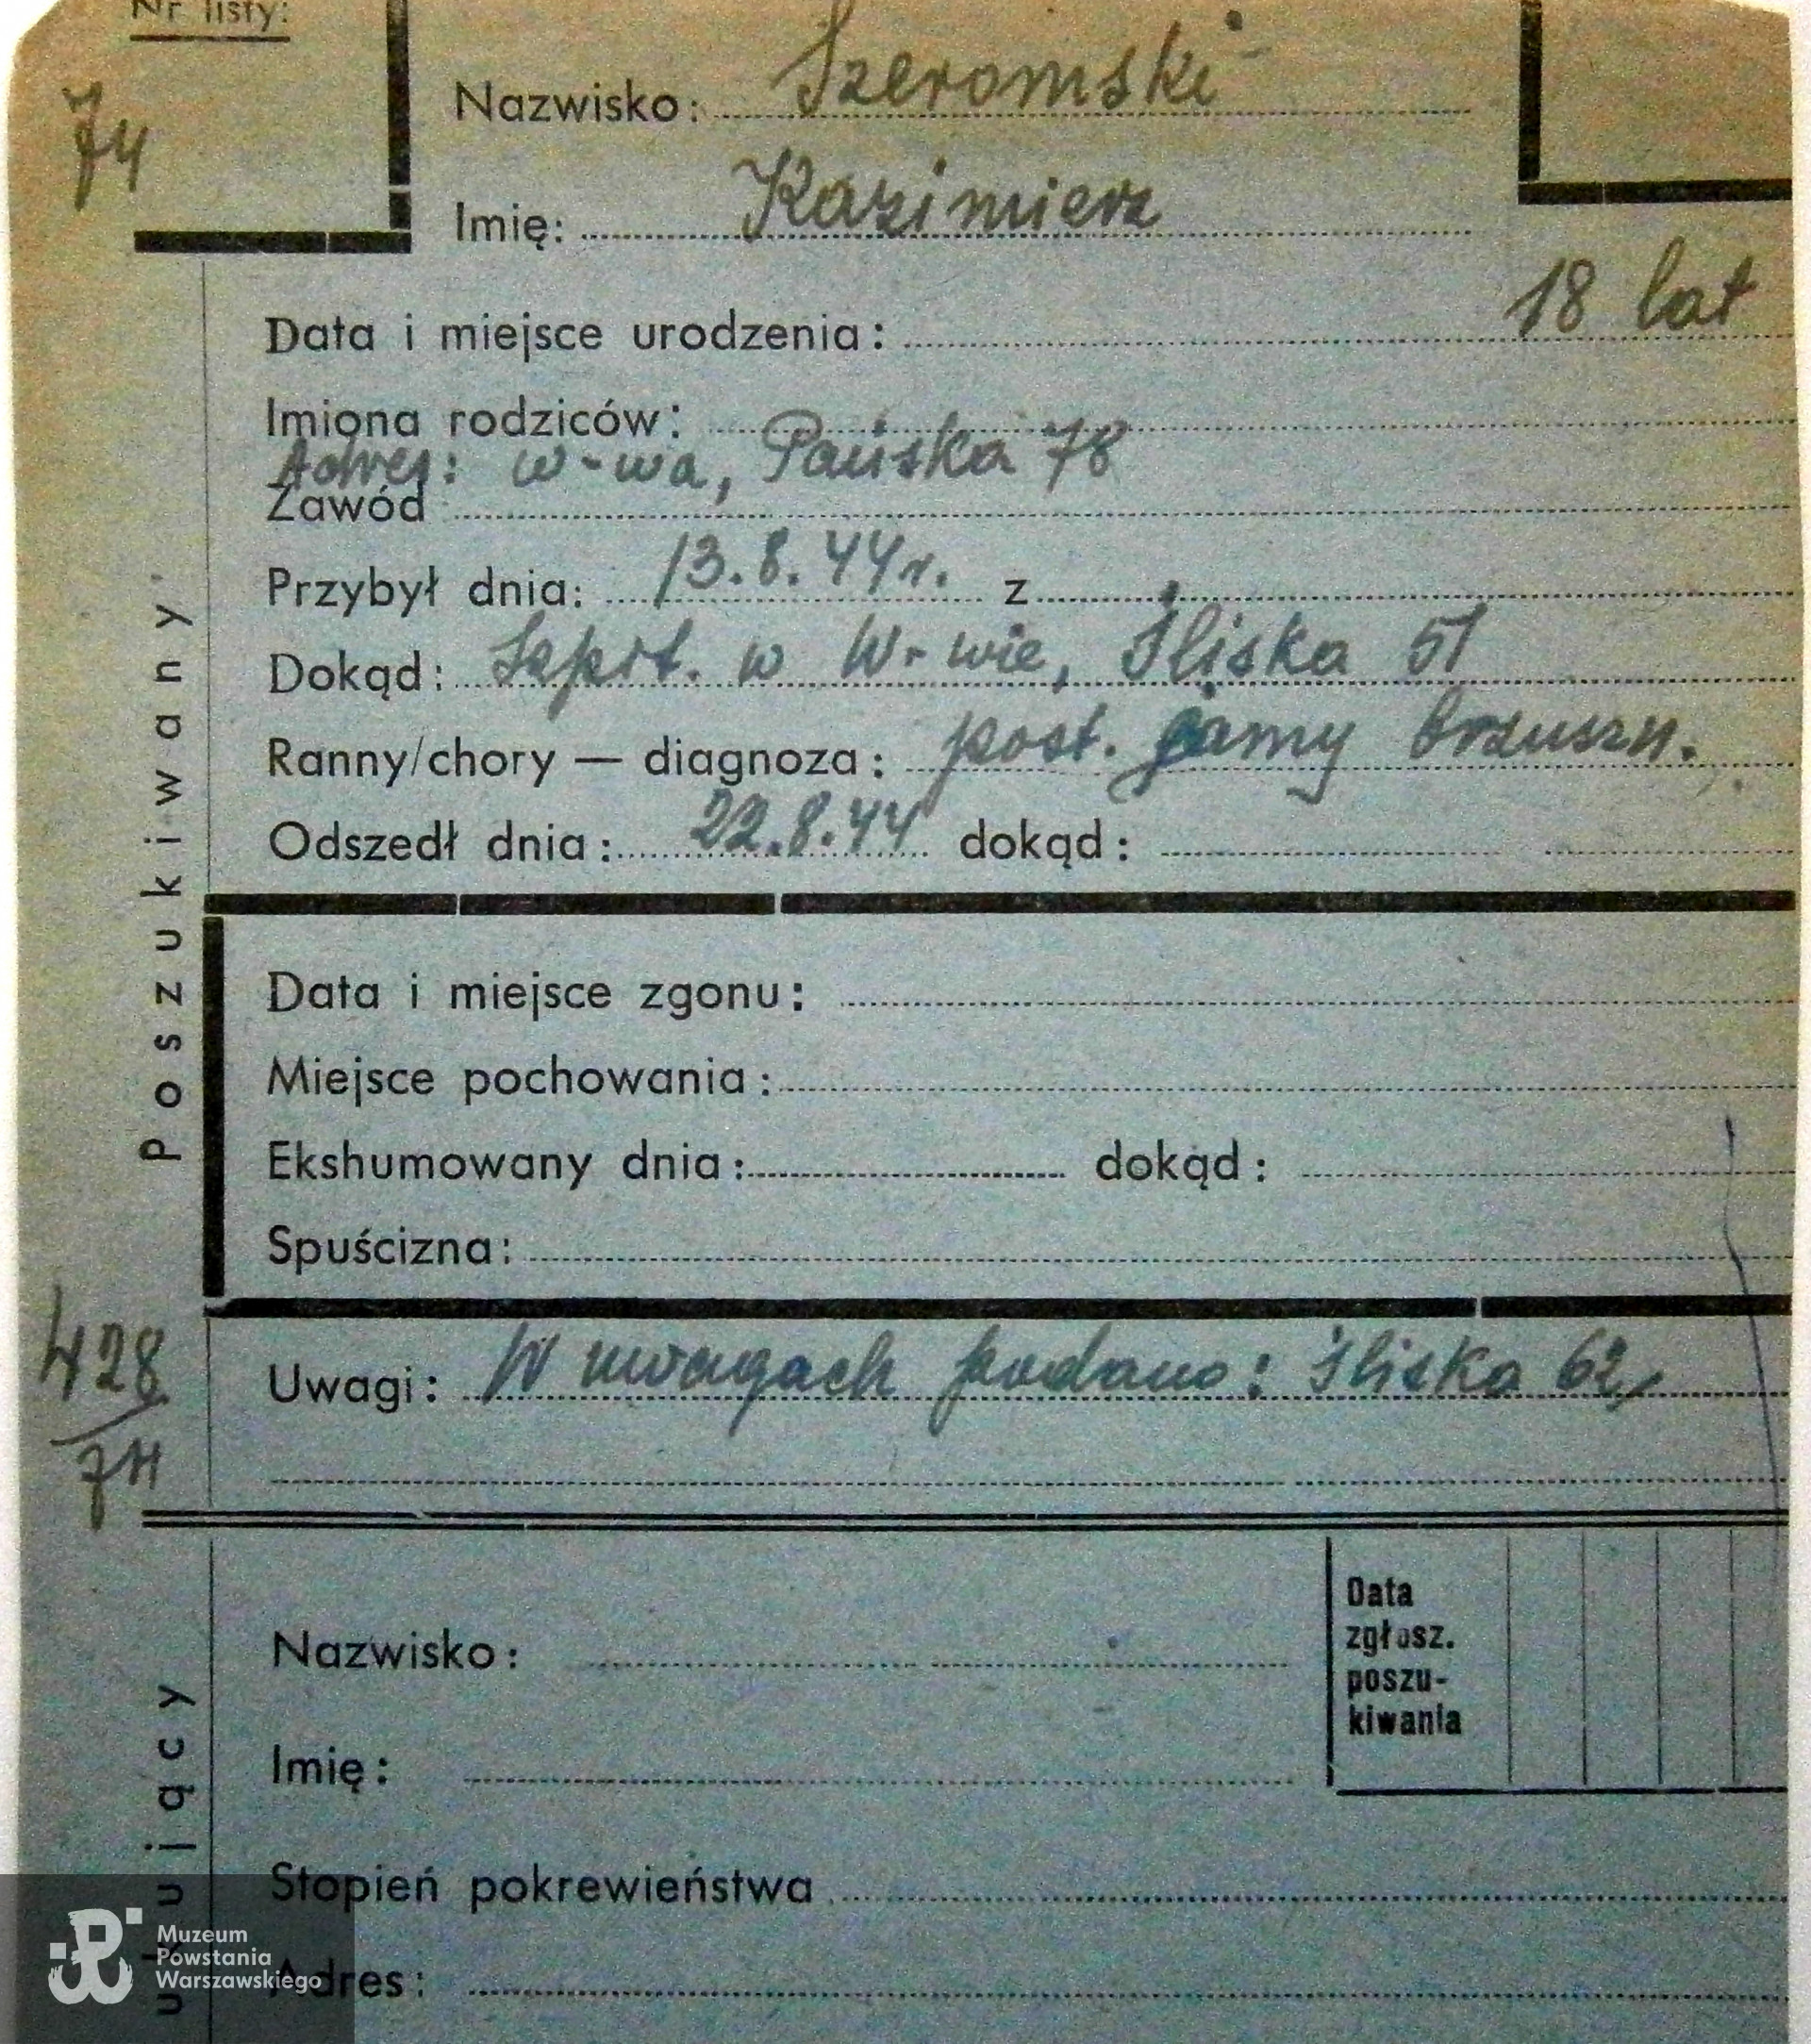 Nr listy:
74
Nazwisko: Szeromski
Imię: Kazimierz
Data i miejsce urodzenia: 18 lat
Imiona rodziców:
Adres: W-wa, Pańska 78
Zawód
Przybył dnia: 13.8.44r. z
Dokąd: Szpit. w W-wie, Śliska 51
Ranny/chory — diagnoza: post. jamy brzuszn.
Odszedł dnia: 22.8.44 dokąd:
Poszukiwany
Data i miejsce zgonu:
Miejsce pochowania:
Ekshumowany dnia: dokąd:
Spuścizna:
428/74
Uwagi: W uwagach podano: Śliska 62,
Nazwisko:
Data
zgłosz.
poszu-
kiwania
Imię:
Stopień pokrewieństwa
Adres:
ukujący
Muzeum
Powstania
Warszawskiego